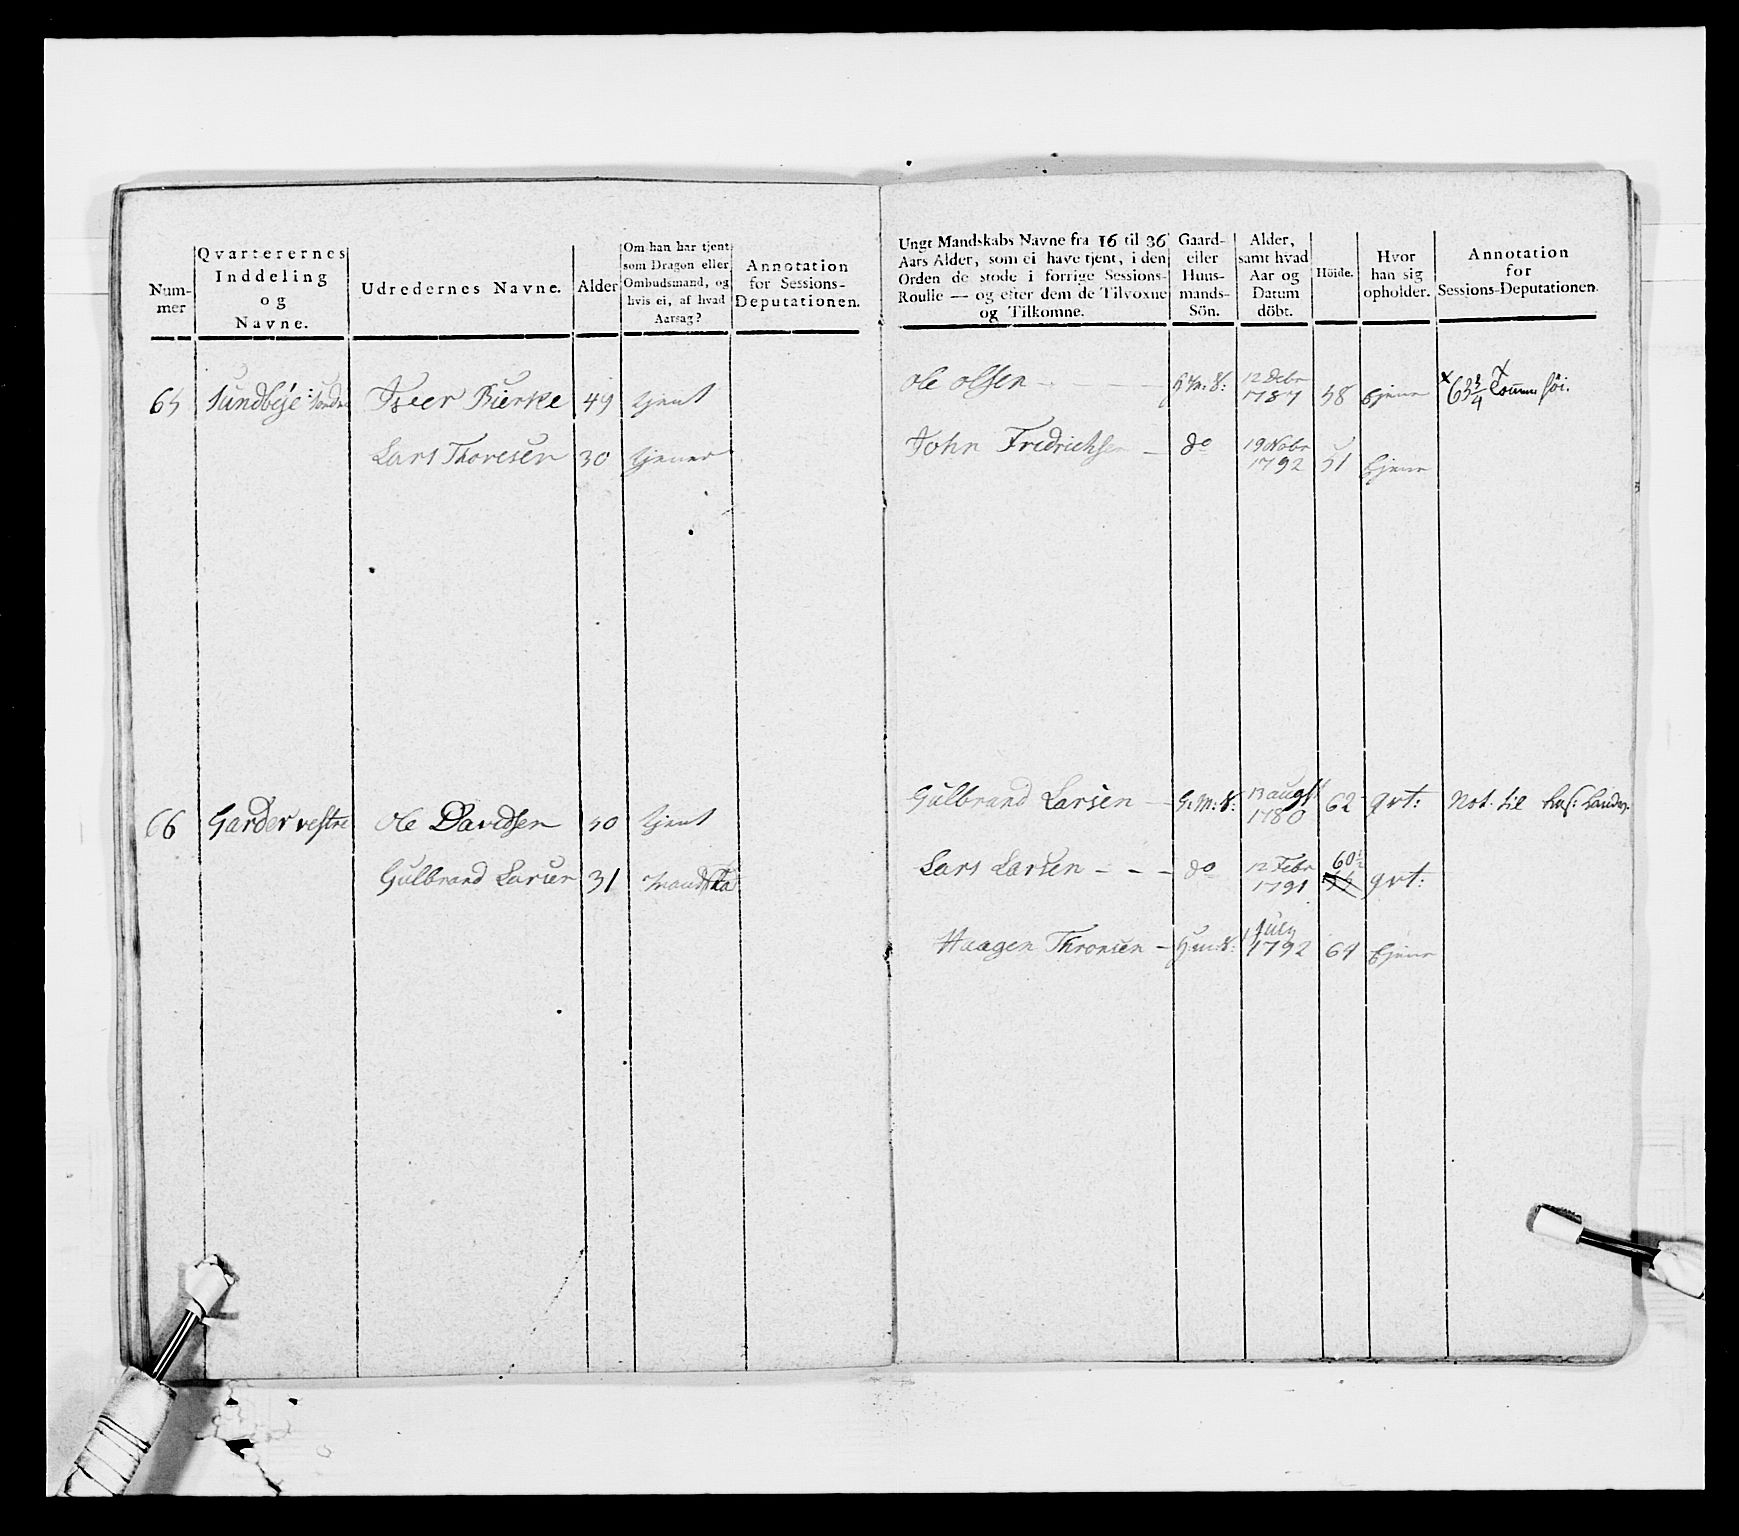 Num-
mer
Qvarterernes
Inddeling
og
Navne.
Udredernes Navne.
Alder
Om han har tjent
som Dragon eller
Ombudsmand, og
hvis ei, af hvad
Aarsag?
Annotation
for Sessions-
Deputationen.
65 Sundbÿe Søndre Iver Bierke 49 tjent
Lars Thoresen 30 tjener
66 Garder vestre Ole Davidsen 50 tjent
Gulbrand Larsen 31
Ungt Mandskabs Navne fra 16 til 36
Aars Alder, som ei have tjent, i den
Orden de stode i forrige Sessions-
Roulle — og efter dem de Tilvoxne
og Tilkomne.
Gaard-
eller
Huus-
mands-
Sön.
Alder,
samt hvad
Aar og
Datum
döbt.
Höide.
Hvor
han sig
opholder.
Annotation
for
Sessions-Deputationen.
Ole Olsen - - - H:m:S: 12 Debr 1787 58 tjener × 63 3/4 Tomme høi.
John Fredrichsen - do 19 Nobr 1792 51 tjener
Gulbrand Larsen - G:M:S: 13 augst 1780 62 qvt: Not. til
Lars Larsen - - - do 12 Febr 1791 60 1/2 qvt:
Haagen Thronsen - H:m:S: 1 July 1792 64 tjener